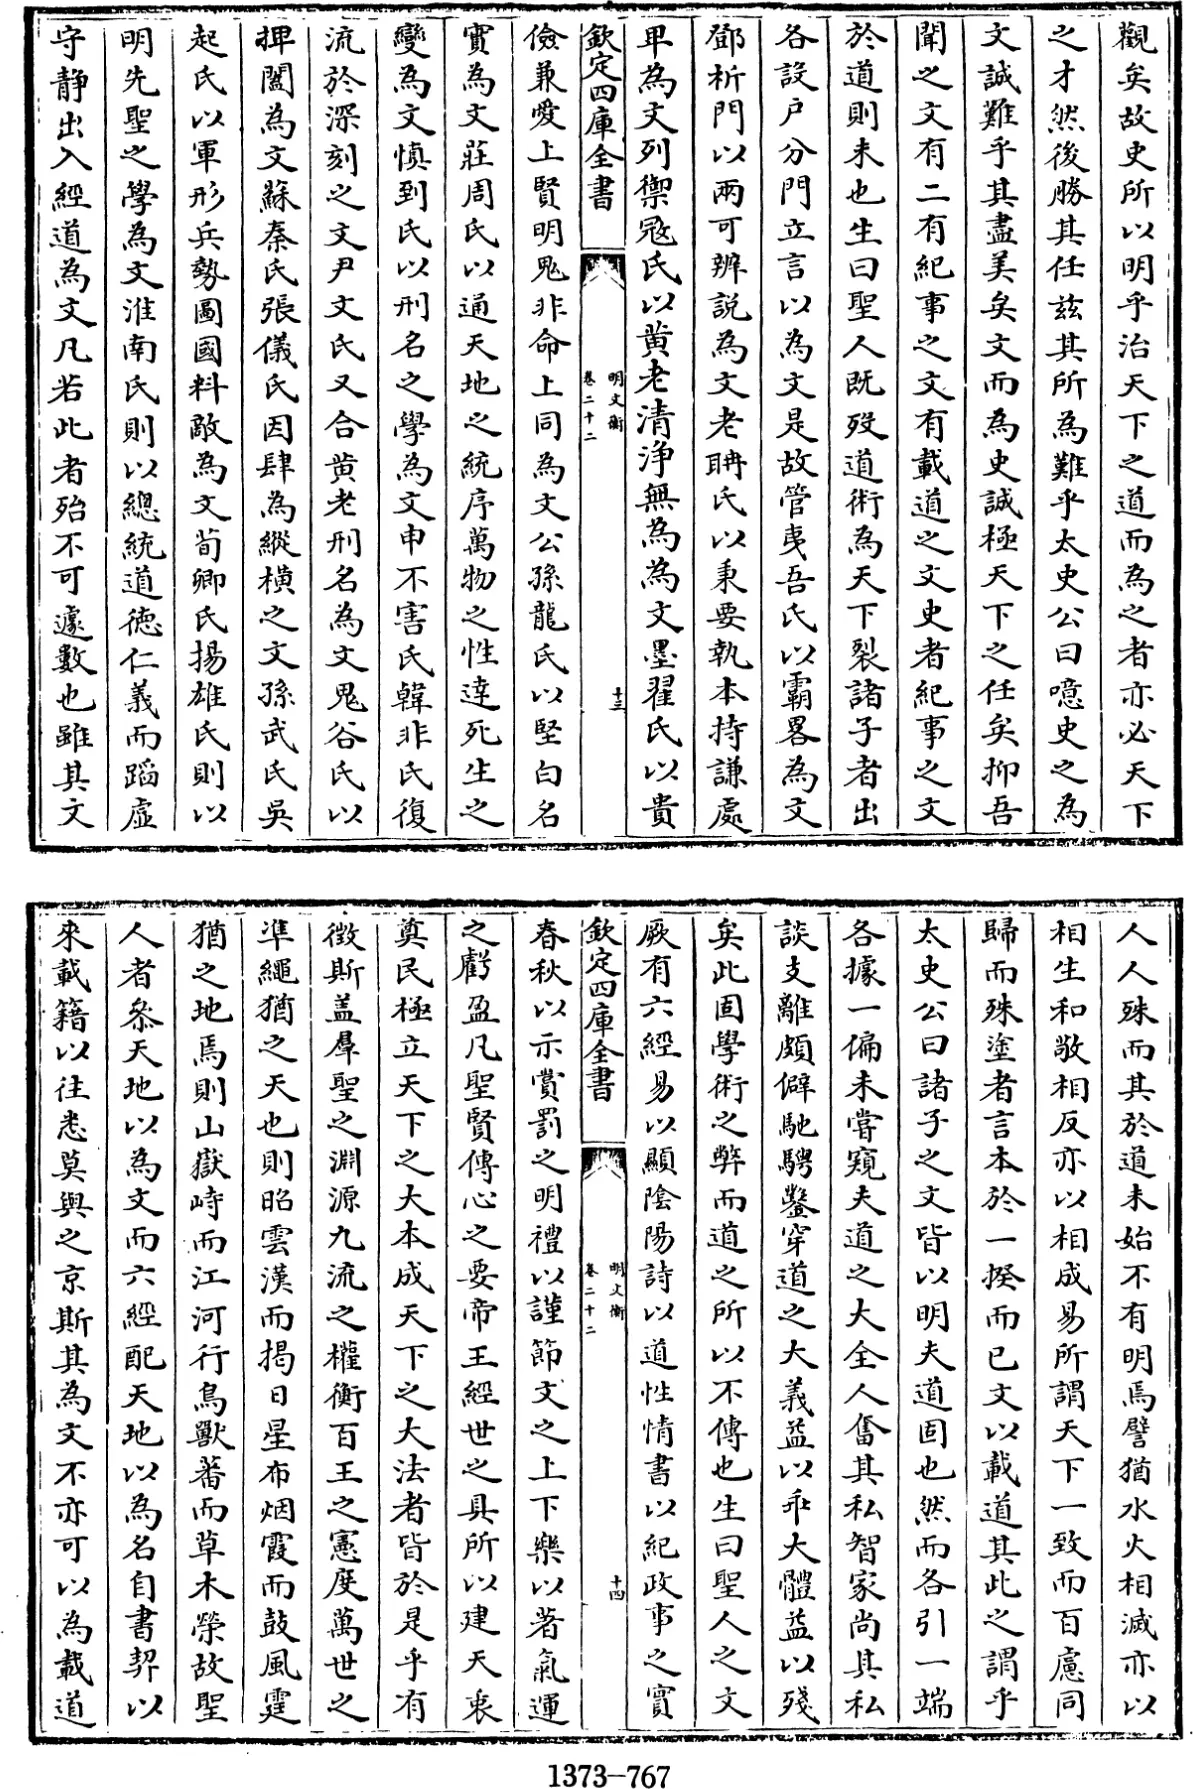 觀矣故史所以明乎治天下之道而為之者亦必天下
之才然後勝其任茲其所為難乎太史公曰噫史之為
文誠難乎其盡美矣文而為史誠極天下之任矣抑吾
聞之文有二有紀事之文有載道之文史者紀事之文
於道則未也生曰聖人既歿道術為天下裂諸子者出
各設戶分門立言以為文是故管夷吾氏以霸畧為文
鄧析門以兩可辨說為文老聃氏以秉要執本持謙處
卑為文列禦寇氏以黄老清淨無為為文墨翟氏以貴
欽定四庫全書
明文衡
卷二十二
十三
儉兼愛上賢明鬼非命上同為文公孫龍氏以堅白名
實為文莊周氏以通天地之統序萬物之性達死生之
變為文慎到氏以刑名之學為文申不害氏韓非氏復
流於深刻之文尹文氏又合黄老刑名為文鬼谷氏以
捭闔為文蘇秦氏張儀氏因肆為縱橫之文孫武氏吳
起氏以軍形兵勢圖國料敵為文荀卿氏揚雄氏則以
明先聖之學為文淮南氏則以總統道德仁義而蹈虛
守静出入經道為文凡若此者殆不可遽數也雖其文
人人殊而其於道未始不有明焉譬猶水火相滅亦以
相生和敬相反亦以相成易所謂天下一致而百慮同
歸而殊塗者言本於一揆而已文以載道其此之謂乎
太史公曰諸子之文皆以明夫道固也然而各引一端
各據一偏未嘗窺夫道之大全人奮其私智家尚其私
談支離頗僻馳騁鑿穿道之大義益以乖大體益以殘
矣此固學術之弊而道之所以不傳也生曰聖人之文
厥有六經易以顯陰陽詩以道性情書以紀政事之實
欽定四庫全書
明文衡
卷二十二
十四
春秋以示賞罰之明禮以謹節文之上下樂以著氣運
之虧盈凡聖賢傳心之要帝王經世之具所以建天衷
奠民極立天下之大本成天下之大法者皆於是乎有
徴斯盖羣聖之淵源九流之權衡百王之憲度萬世之
準繩猶之天也則昭雲漢而揭日星布烟霞而鼓風霆
猶之地焉則山嶽峙而江河行鳥獸蕃而草木榮故聖
人者叅天地以為文而六經配天地以為名自書契以
來載籍以往悉莫與之京斯其為文不亦可以為載道
1373-767